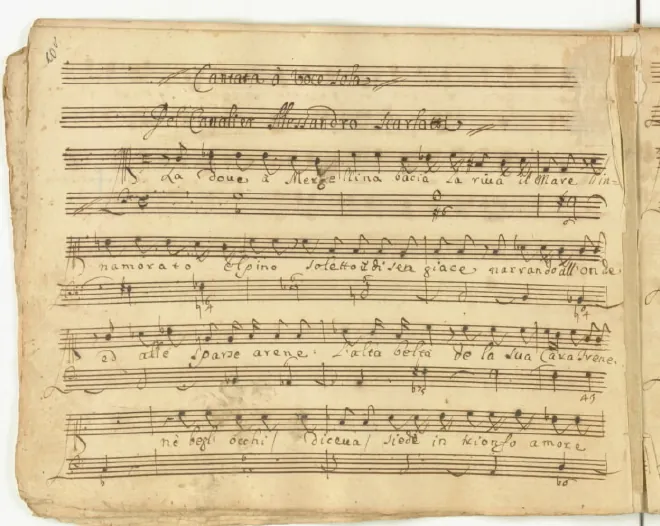 Cantata à Voce sola
Del Cavalier Alessandro Scarlatti
La doue à Mergellina bacia la riua il Mare l'in=
namorato Elpino soletto un dì sen giace narrando all'onde
ed alle sparse arene. L'alta beltà de la sua Cara Irene.
nè begli occhi / diceua / siede in trionfo amore